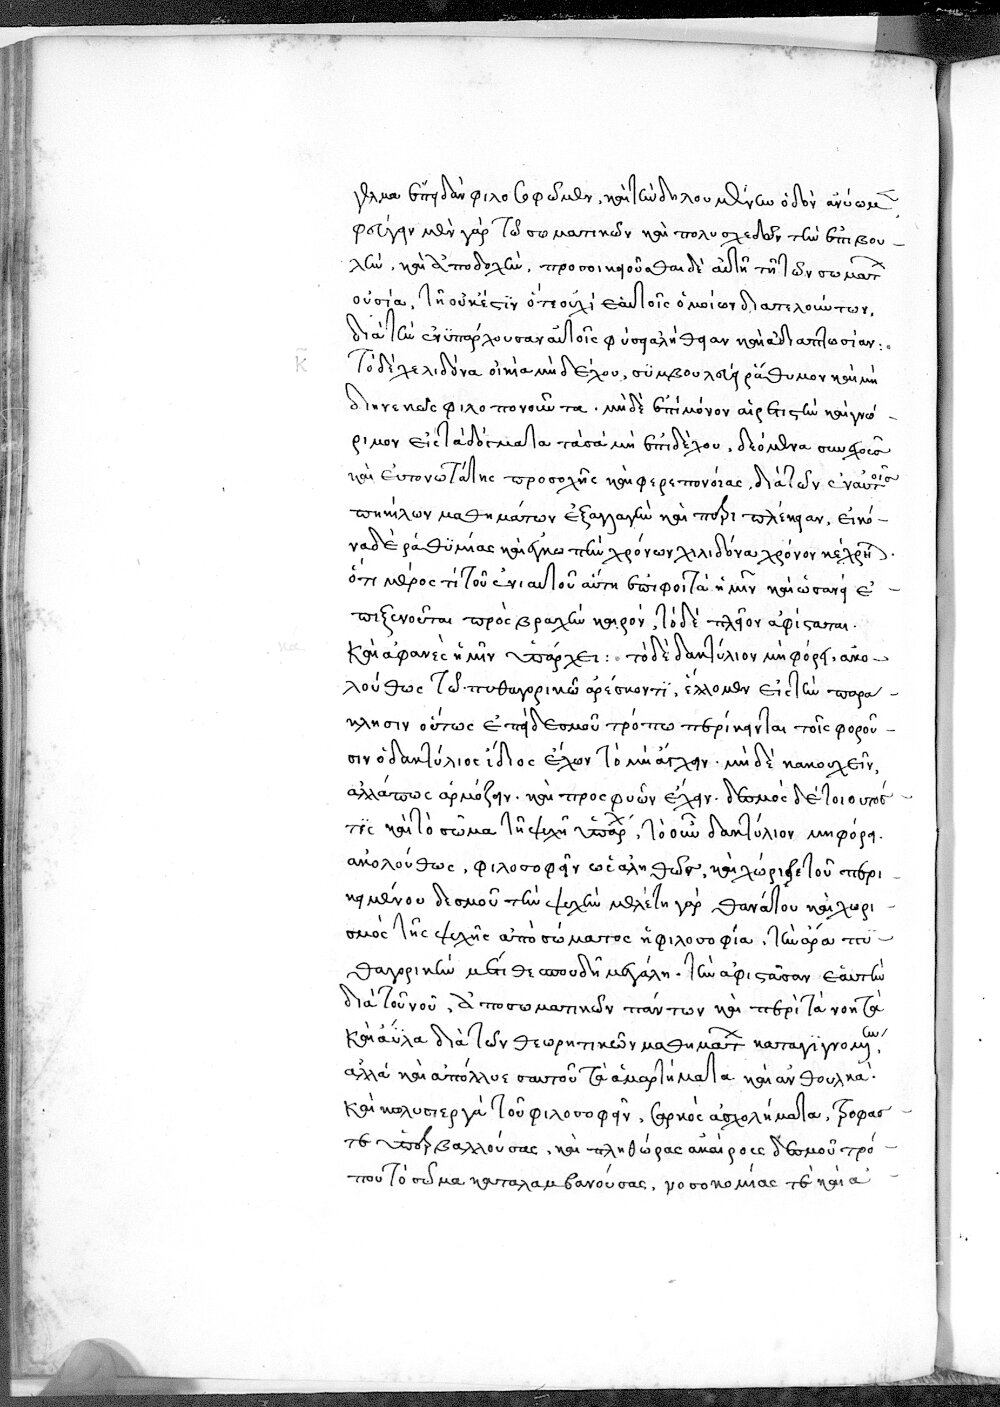 γελμα ἐπειδὰν φιλοσοφῶμεν, καὶ τὴν δηλουμένην ὁδὸν ἀνύωμεν
φεύγειν μὲν γὰρ τῶ σωματικῶν καὶ πολυσχεδῶν τὴν ἐπιβου –
λὴν, καὶ ἀποδοχὴν, προσοικειοῦσθαι δὲ αὐτῆ τῆ τῶν σωμάτ
οὐσία, τῆ οὐκέστιν ὅτε οὐχὶ ἑαυτοῖς ὁμοίων διατελούντων,
διὰ τὴν ἐνϋπάρχουσαν αὐτοῖς φύσει ἀλήθειαν καὶ ἀδιαπτωσίαν :
κ̅ Τὸ δὲ χελιδόνα οἰκία μὴ δέχου, συμβουλεύει ῥάθυμον καὶ μὴ
διηνεκῶς φιλοπονοῦντα . μηδὲ ἐπίμονον αἱρετιστὴν καὶ γνώ –
ριμον εἰς τὰ δόγματα τὰ σὰ μὴ ἐπιδέχου, δεόμενα συνεχοῦς
καὶ εὐτονωτάτης προσοχῆς καὶ φερεπονίας, διὰ τῶν ἐν αὐτοῖς
ποικίλων μαθημάτων ἐξαλλαγὴν καὶ περιπλέκειαν, εἰκό –
να δὲ ῥαθϋμίας καὶ ἐγκοπὴν χρόνων χιλιδόνα χρόνον κέχρη.
ὅτι μέρος τί τοῦ ἐνιαυτοῦ αὕτη ἐπιφοιτᾶ ἡμῖν καὶ ὡσανεὶ ἐ –
πιξενοῦται πρὸς βραχὺν καιρόν, τὸ δὲ πλεῖον ἀφίσταται.
κα καὶ ἀφανὲς ἡμῖν ὑπάρχει : τὸ δὲ δακτύλιον μὴ φόρει, ἀκο –
λούθως τῶ πυθαγορικῶ ἀρέσκοντϊ, ἕλλομεν εἰς τὴν παρα –
κλησιν οὕτως ἐπειδεσμοῦ τρόπω περίκειται τοῖς φοροῦ –
σιν ὁ δακτύλιος ἴδιος ἔχων τὸ μὴ ἄγχειν . μηδὲ κακουχεῖν,
ἀλλά πως ἁρμόζειν . καὶ προσφυῶν ἔχειν . δεσμὸς δέ τοιοῦτός –
τις καὶ τὸ σῶμα τῆ ψυχῆ ὑπάρχ, τὸ οὖν δακτύλιον μὴ φόρει .
ἀκολούθως, φιλοσοφεῖν ὡς ἀληθῶς, καὶ χώριζε τοῦ περι –
κειμένου δεσμοῦ τὴν ψυχὴν μελέτη γὰρ θανάτου καὶ χωρι –
σμὸς τῆς ψυχῆς ἀπὸ σώματος ἡ φιλοσοφία, τὴν ἄρα πυ –
θαγορικὴν μέτιθε σπουδῆ μεγάλη . τὴν ἀφιστᾶσαν ἑαυτὴν
διὰ τοῦ νοῦ, ἀπο σωματικῶν πάντων καὶ περὶ τὰ νοητὰ
καὶ ἄϋλα διὰ τῶν θεωρητικῶν μαθημάτ καταγϊγνομένην,
ἀλλὰ καὶ ἀπόλλυε σαυτοῦ τὰ ἁμαρτήματα καὶ ἀνθολκά.
καὶ κωλυσιεργὰ τοῦ φιλοσοφεῖν, σαρκὸς ἀσχολήματα, τροφάς –
τε ὑπερβαλλούσας, καὶ πληθώρας ἀκαίρους δεσμοῦ τρό –
που τὸ σῶμα καταλαμβανούσας, νοσοκομίας τε καὶ ἀ –